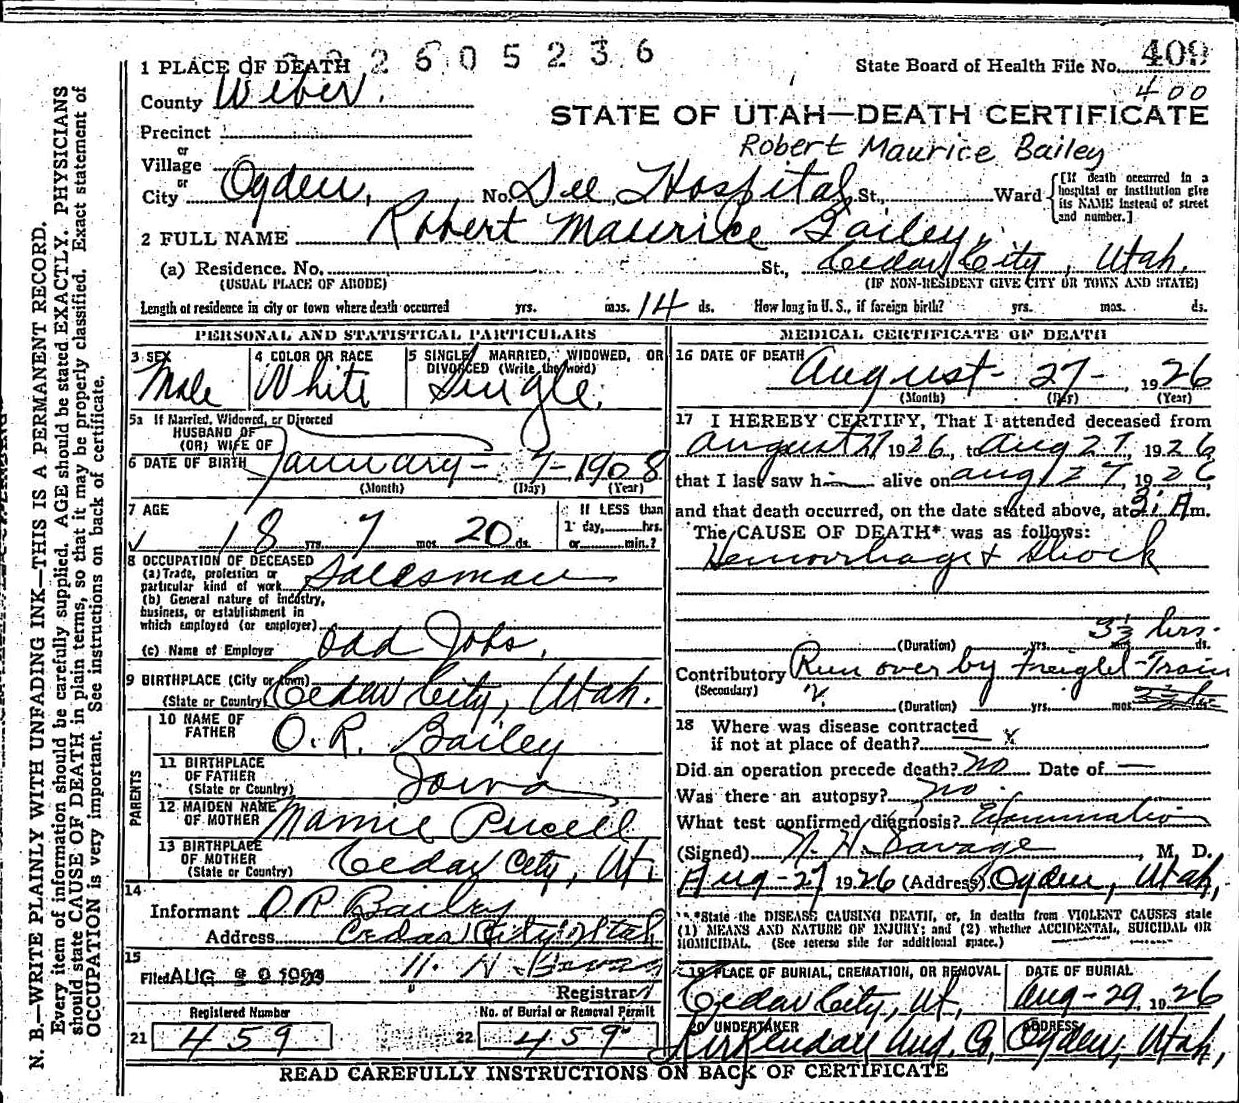 2605236
409
1 PLACE OF DEATH
State Board of Health File No.
400
County Weber.
STATE OF UTAH—DEATH CERTIFICATE
Precinct
Robert Maurice Bailey
or
Village
or
City Ogden, No. Dee Hospital St., Ward
[If death occurred in a hospital or institution give its NAME instead of street and number.]
2 FULL NAME Robert Maurice Bailey,
(a) Residence. No. St., Cedar City, Utah.
(USUAL PLACE OF ABODE) (IF NON-RESIDENT GIVE CITY OR TOWN AND STATE)
Length of residence in city or town where death occurred yrs. mos. 14 ds. How long in U. S., if foreign birth? yrs. mos. ds.
PERSONAL AND STATISTICAL PARTICULARS
3 SEX Male
4 COLOR OR RACE White
5 SINGLE, MARRIED, WIDOWED, OR DIVORCED (Write the word) Single.
5a If Married, Widowed, or Divorced
HUSBAND OF
(OR) WIFE OF
6 DATE OF BIRTH January - 7 - 1908
(Month) (Day) (Year)
7 AGE 18 yrs. 7 mos. 20 ds.
If LESS than
1 day, hrs.
or min.?
8 OCCUPATION OF DECEASED
(a) Trade, profession or
particular kind of work Salesman
(b) General nature of industry,
business, or establishment in
which employed (or employer)
(c) Name of Employer Odd Jobs,
9 BIRTHPLACE (City or town)
(State or Country) Cedar City, Utah.
PARENTS
10 NAME OF FATHER O. R. Bailey
11 BIRTHPLACE OF FATHER (State or Country) Iowa
12 MAIDEN NAME OF MOTHER Mamie
13 BIRTHPLACE OF MOTHER (State or Country) Cedar City, Ut.
14
Informant O R Bailey
Address Cedar City Utah
15
Filed AUG
Registrar
Registered Number
21 459
No. of Burial or Removal Permit
22 459
MEDICAL CERTIFICATE OF DEATH
16 DATE OF DEATH August - 27 - , 1926
(Month) (Day) (Year)
17 I HEREBY CERTIFY, That I attended deceased from
August 27 1926, to Aug 27, 1926
that I last saw h alive on Aug 27, 1926,
and that death occurred, on the date stated above, at 3: A m.
The CAUSE OF DEATH* was as follows:
Hemorrhage & Shock
3½ hrs.
(Duration) yrs. mos. ds.
Contributory Run over by Freight-Train
(Secondary)
(Duration) yrs. mos.
18 Where was disease contracted
if not at place of death? x
Did an operation precede death? No Date of —
Was there an autopsy? No.
What test confirmed diagnosis? Examination
(Signed) N. H. Savage, M. D.
Aug - 27 1926 (Address) Ogden, Utah,
*State the DISEASE CAUSING DEATH, or, in deaths from VIOLENT CAUSES state
(1) MEANS AND NATURE OF INJURY; and (2) whether ACCIDENTAL, SUICIDAL OR
HOMICIDAL. (See reverse side for additional space.)
19 PLACE OF BURIAL, CREMATION, OR REMOVAL Cedar City, Ut,
DATE OF BURIAL Aug-29, 1926
20 UNDERTAKER
ADDRESS Ogden, Utah,
READ CAREFULLY INSTRUCTIONS ON BACK OF CERTIFICATE
N. B.—WRITE PLAINLY WITH UNFADING INK—THIS IS A PERMANENT RECORD.
Every item of information should be carefully supplied. AGE should be stated EXACTLY. PHYSICIANS
should state CAUSE OF DEATH in plain terms, so that it may be properly classified. Exact statement of
OCCUPATION is very important. See instructions on back of certificate.